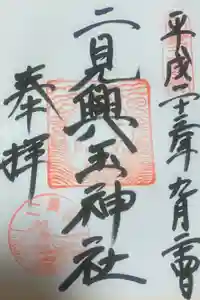 平成二十三年九月二四日
二見興玉神社
奉拝